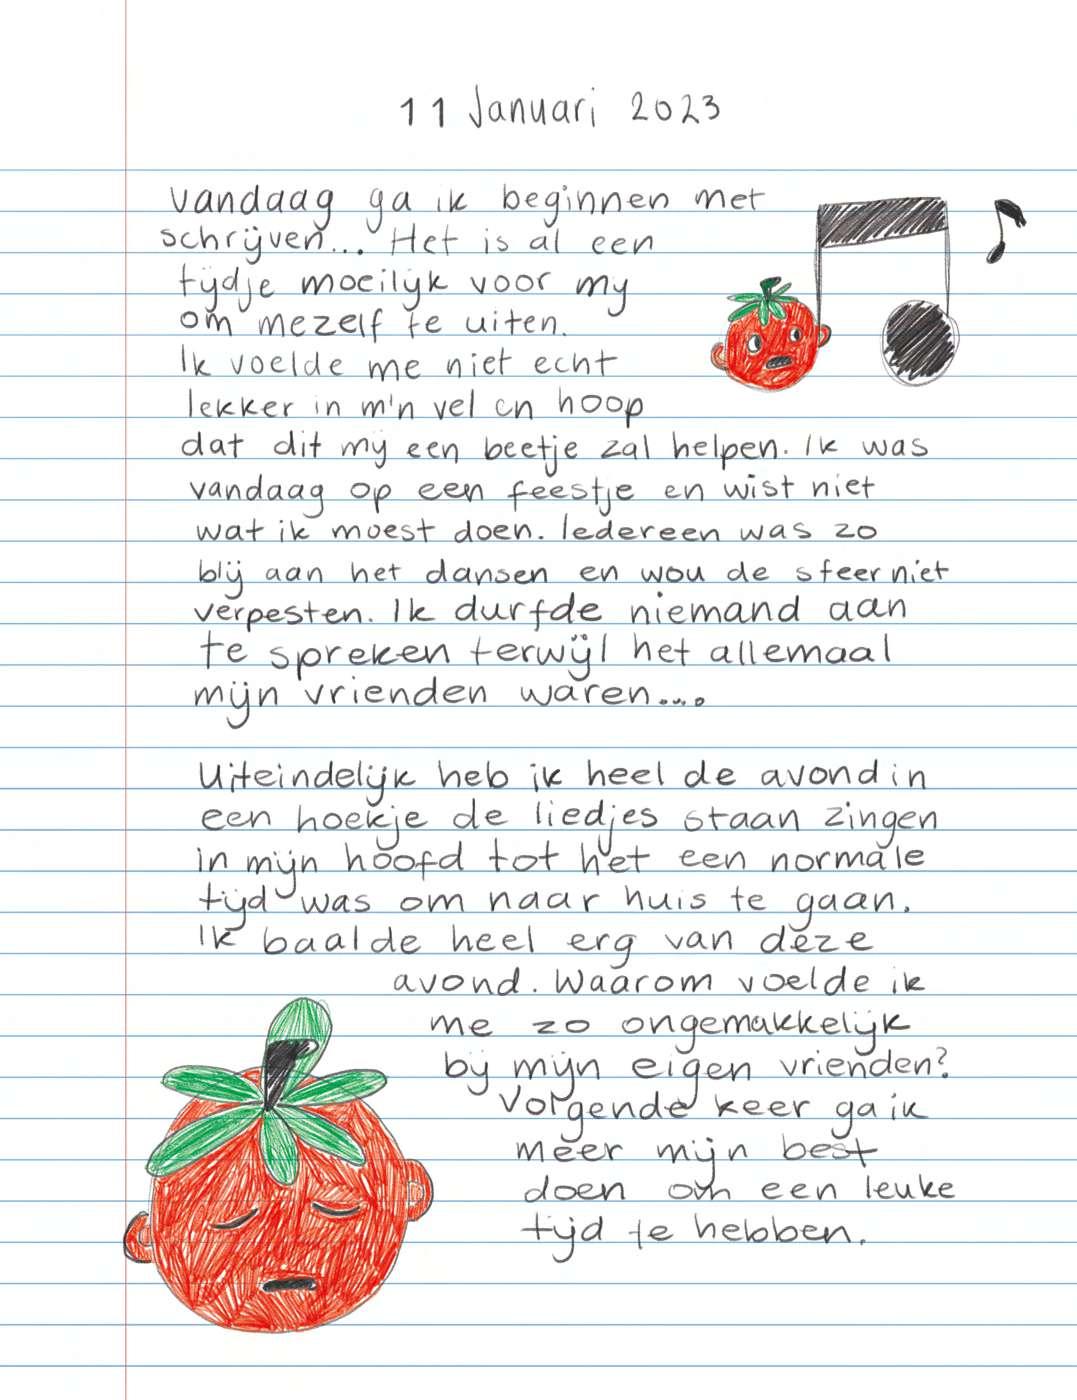 11 Januari 2023
vandaag ga ik beginnen met
schrijven... Het is al een
tijdje moeilijk voor mij
om mezelf te uiten.
Ik voelde me niet echt
lekker in m'n vel en hoop
dat dit mij een beetje zal helpen. Ik was
vandaag op een feestje en wist niet
wat ik moest doen. Iedereen was zo
blij aan het dansen en wou de sfeer niet
verpesten. Ik durfde niemand aan
te spreken terwijl het allemaal
mijn vrienden waren....
Uiteindelijk heb ik heel de avond in
een hoekje de liedjes staan zingen
in mijn hoofd tot het een normale
tijd was om naar huis te gaan.
Ik baalde heel erg van deze
avond. Waarom voelde ik
me zo ongemakkelijk
bij mijn eigen vrienden?
Volgende keer ga ik
meer mijn best
doen om een leuke
tijd te hebben.